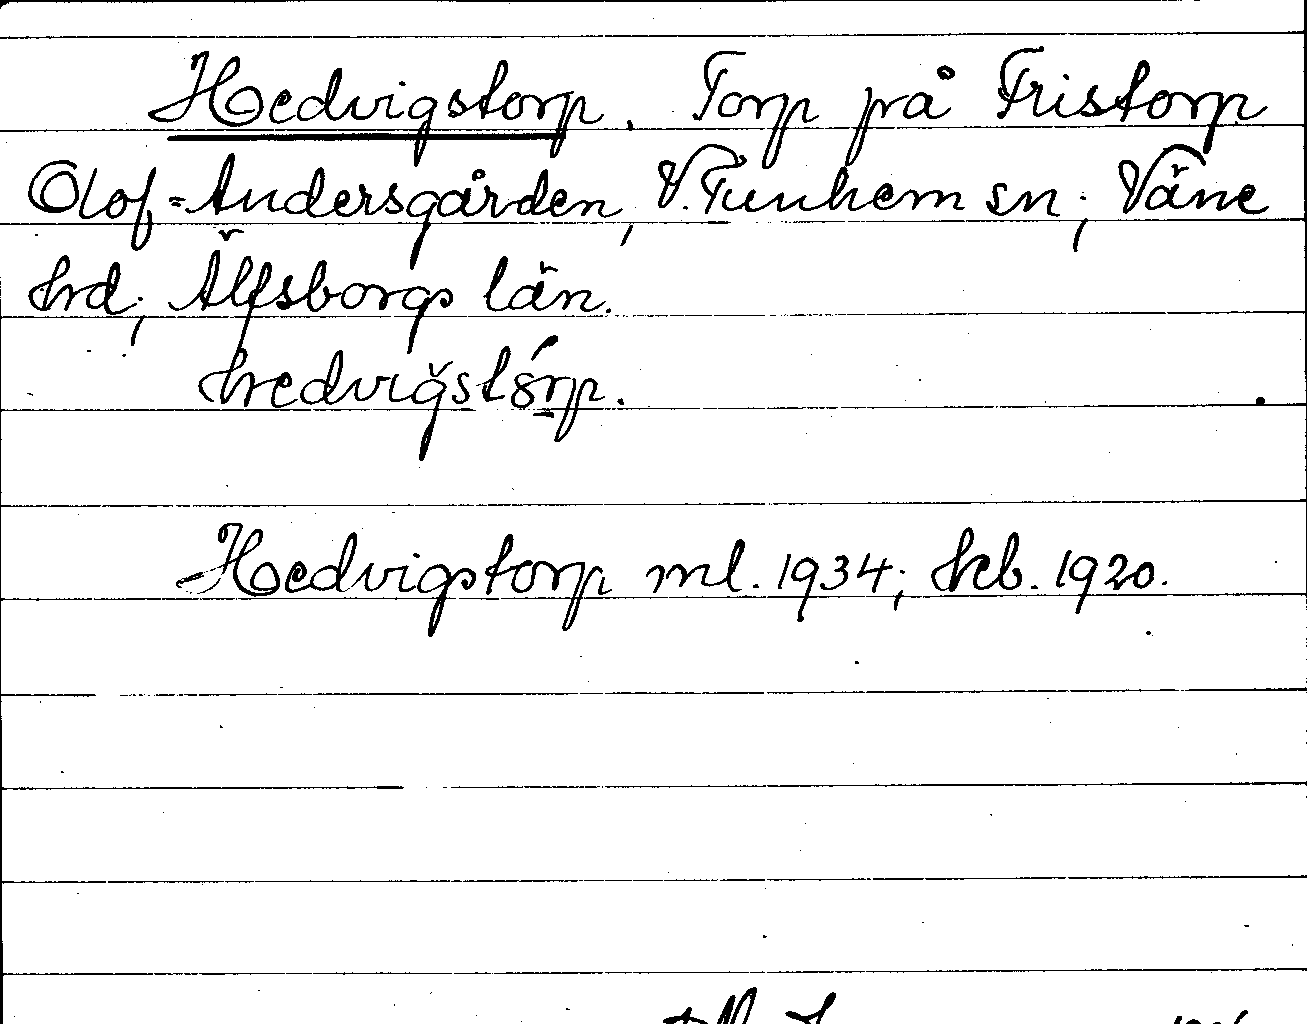 Hedvigstorp. Torp på Fristorp
Olof-Andersgården, V. Tunhem sn; Väne
hrd; Älfsborgs län.
hedvigstórp.
Hedvigstorp ml. 1934; hcb. 1920.